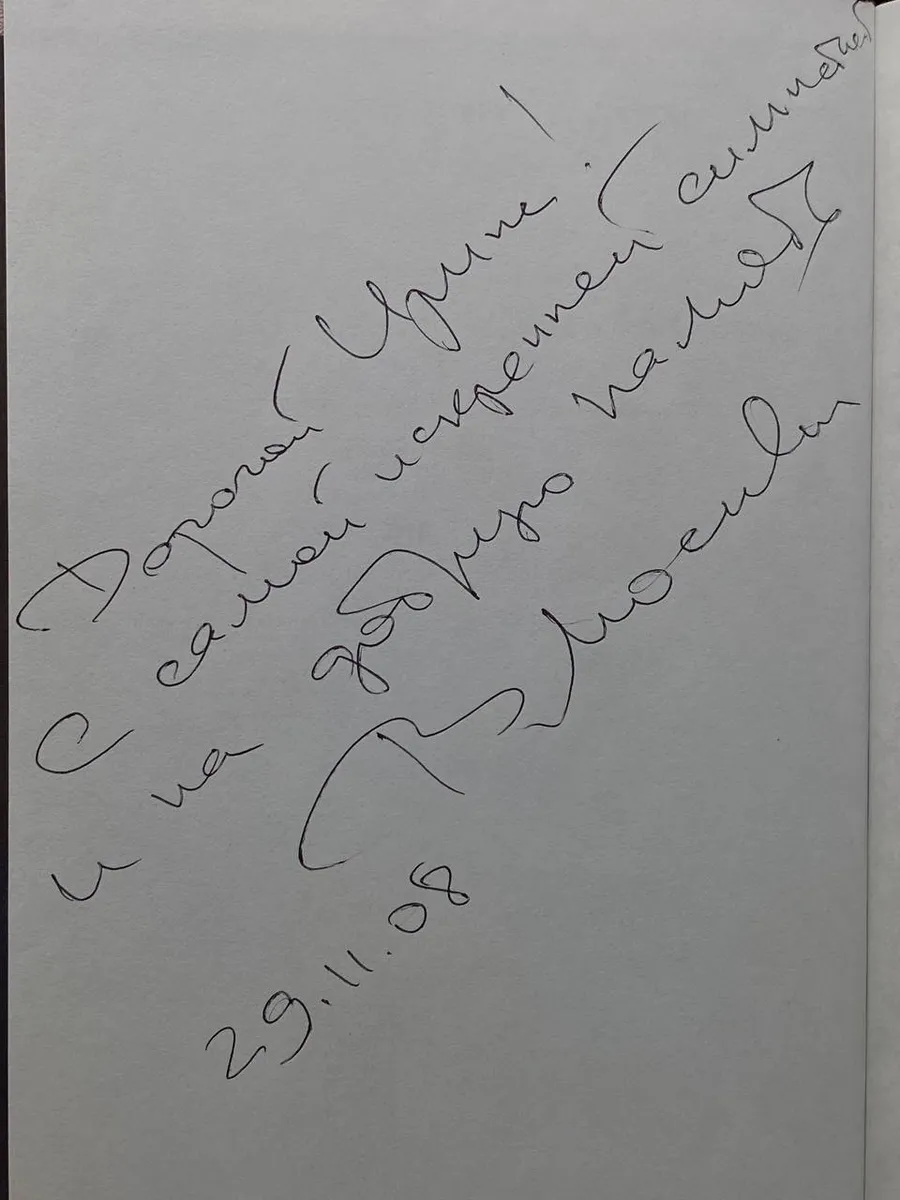 Дорогой Ирине!
С самой искренней симпатией
и на добрую память
29.11.08